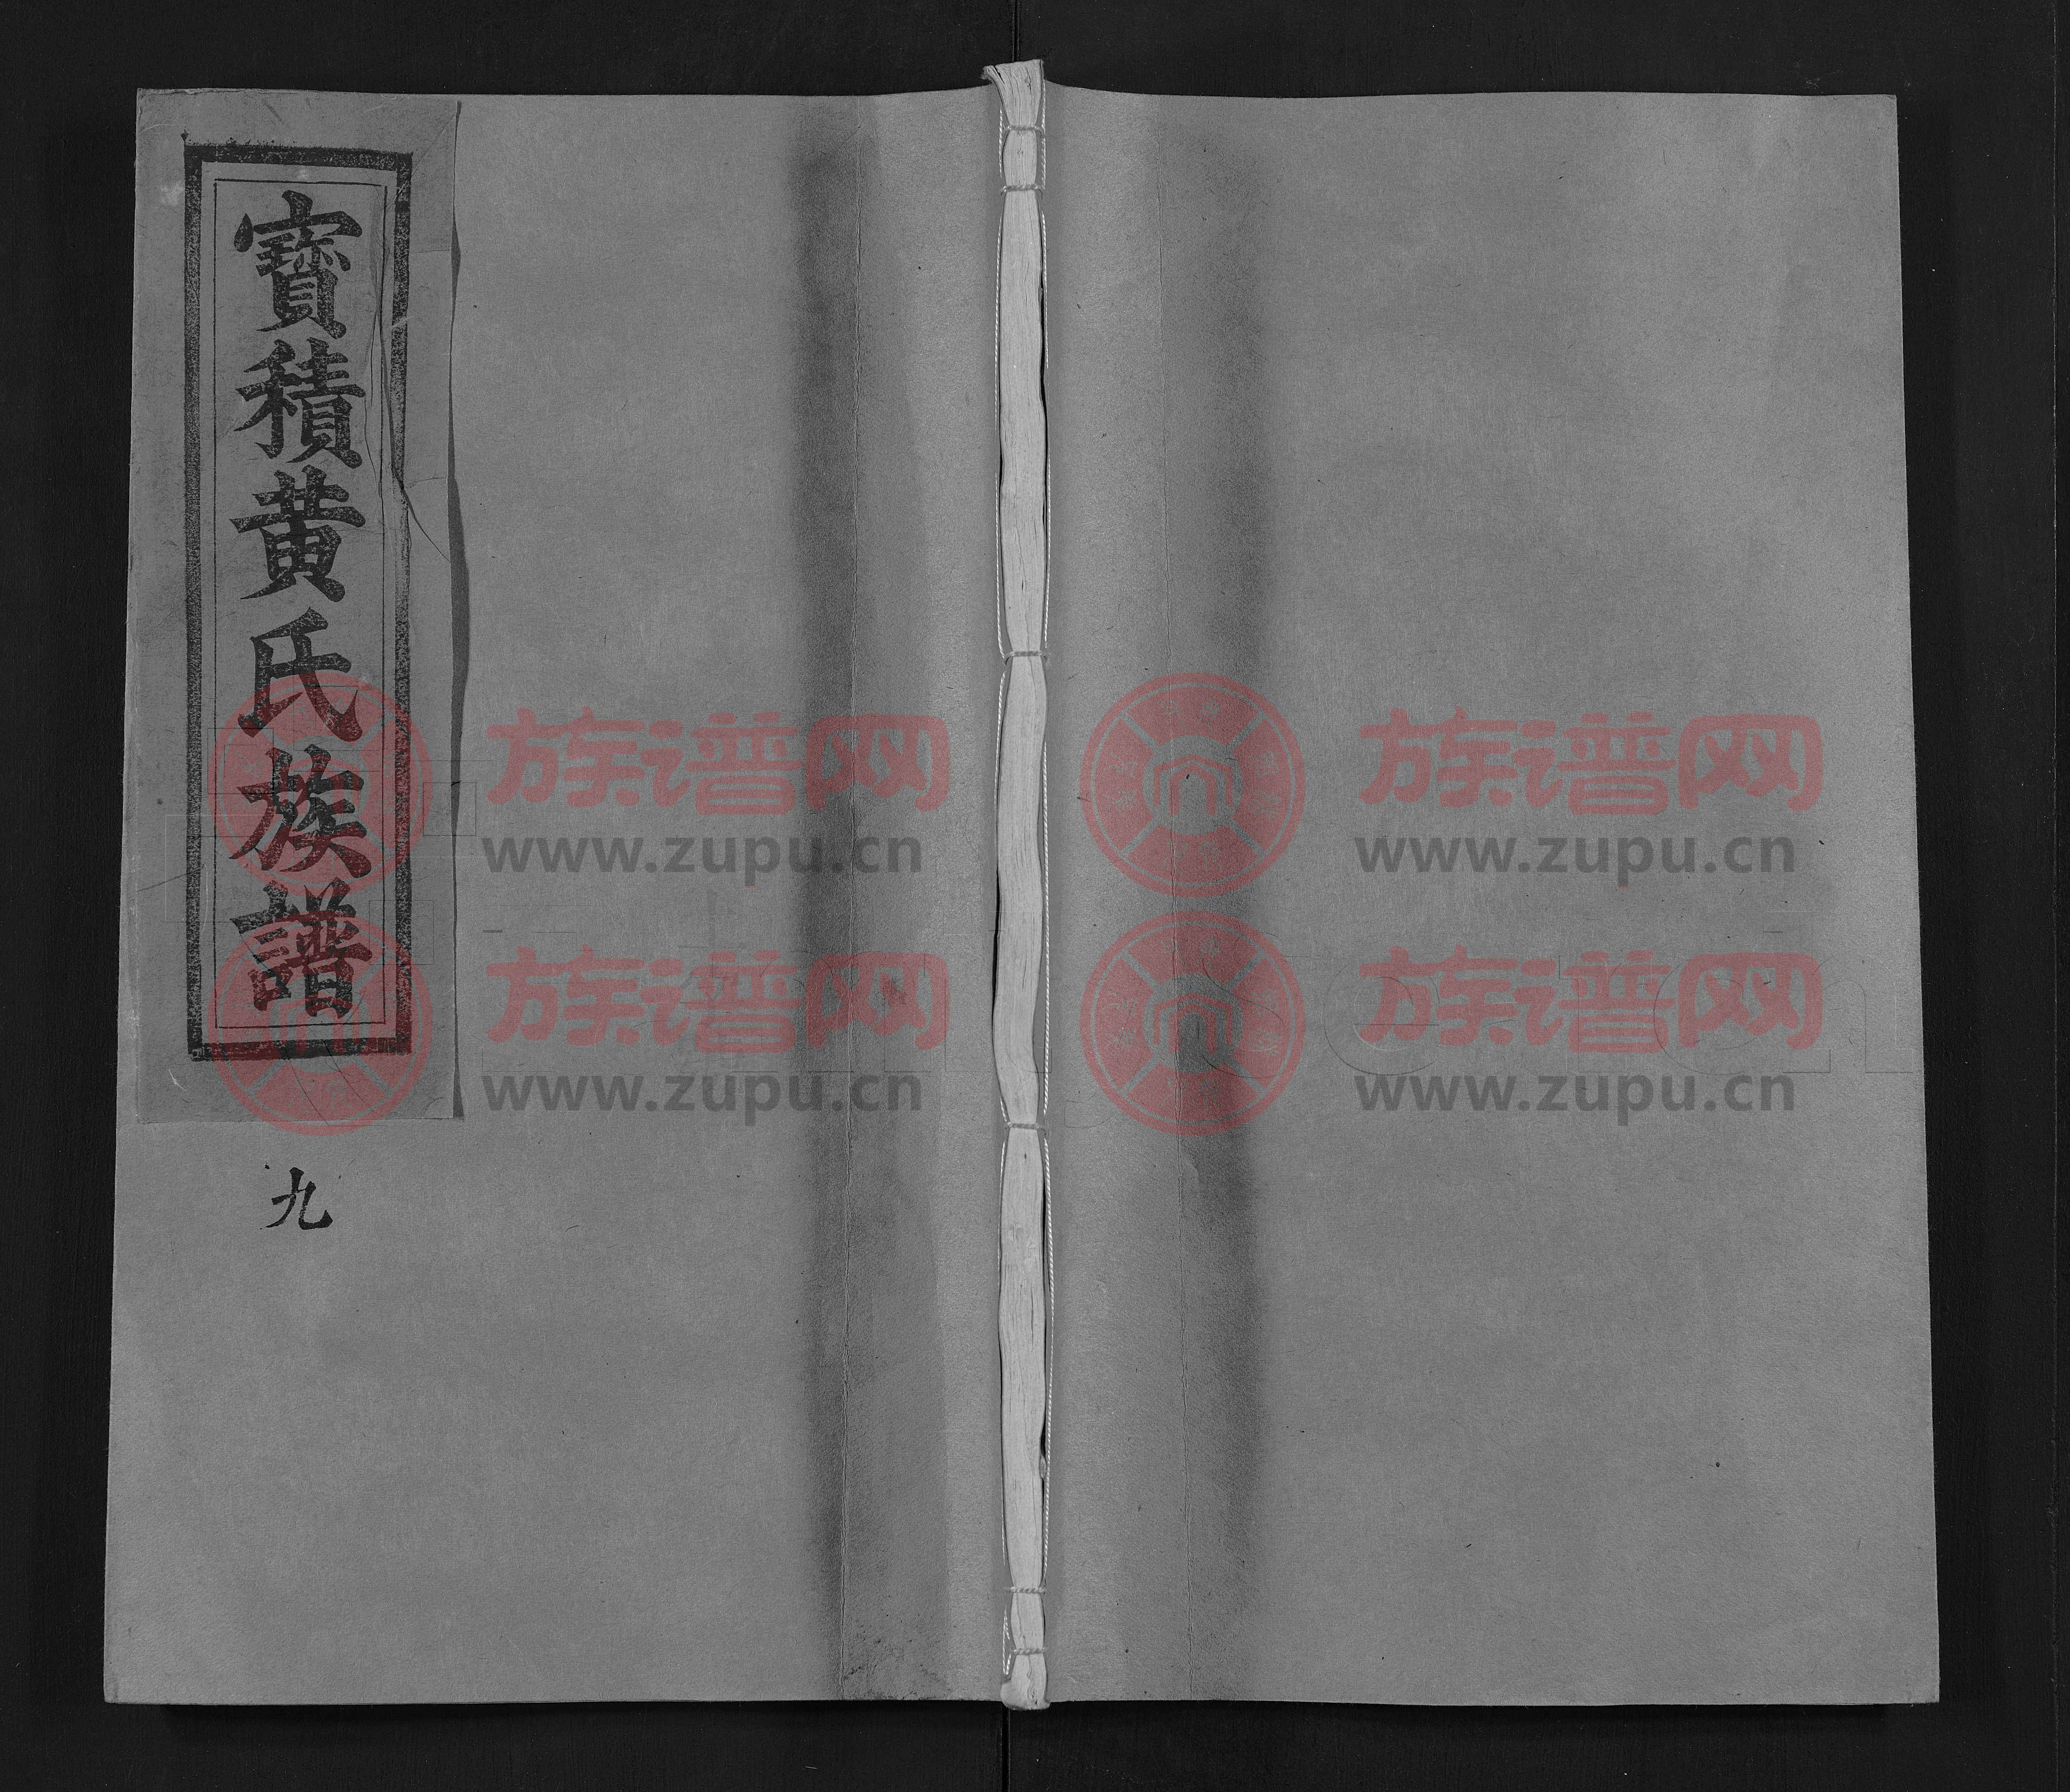 寳積黄氏族譜
九
族谱网
www.zupu.cn
族谱网
www.zupu.cn
族谱网
www.zupu.cn
族谱网
www.zupu.cn